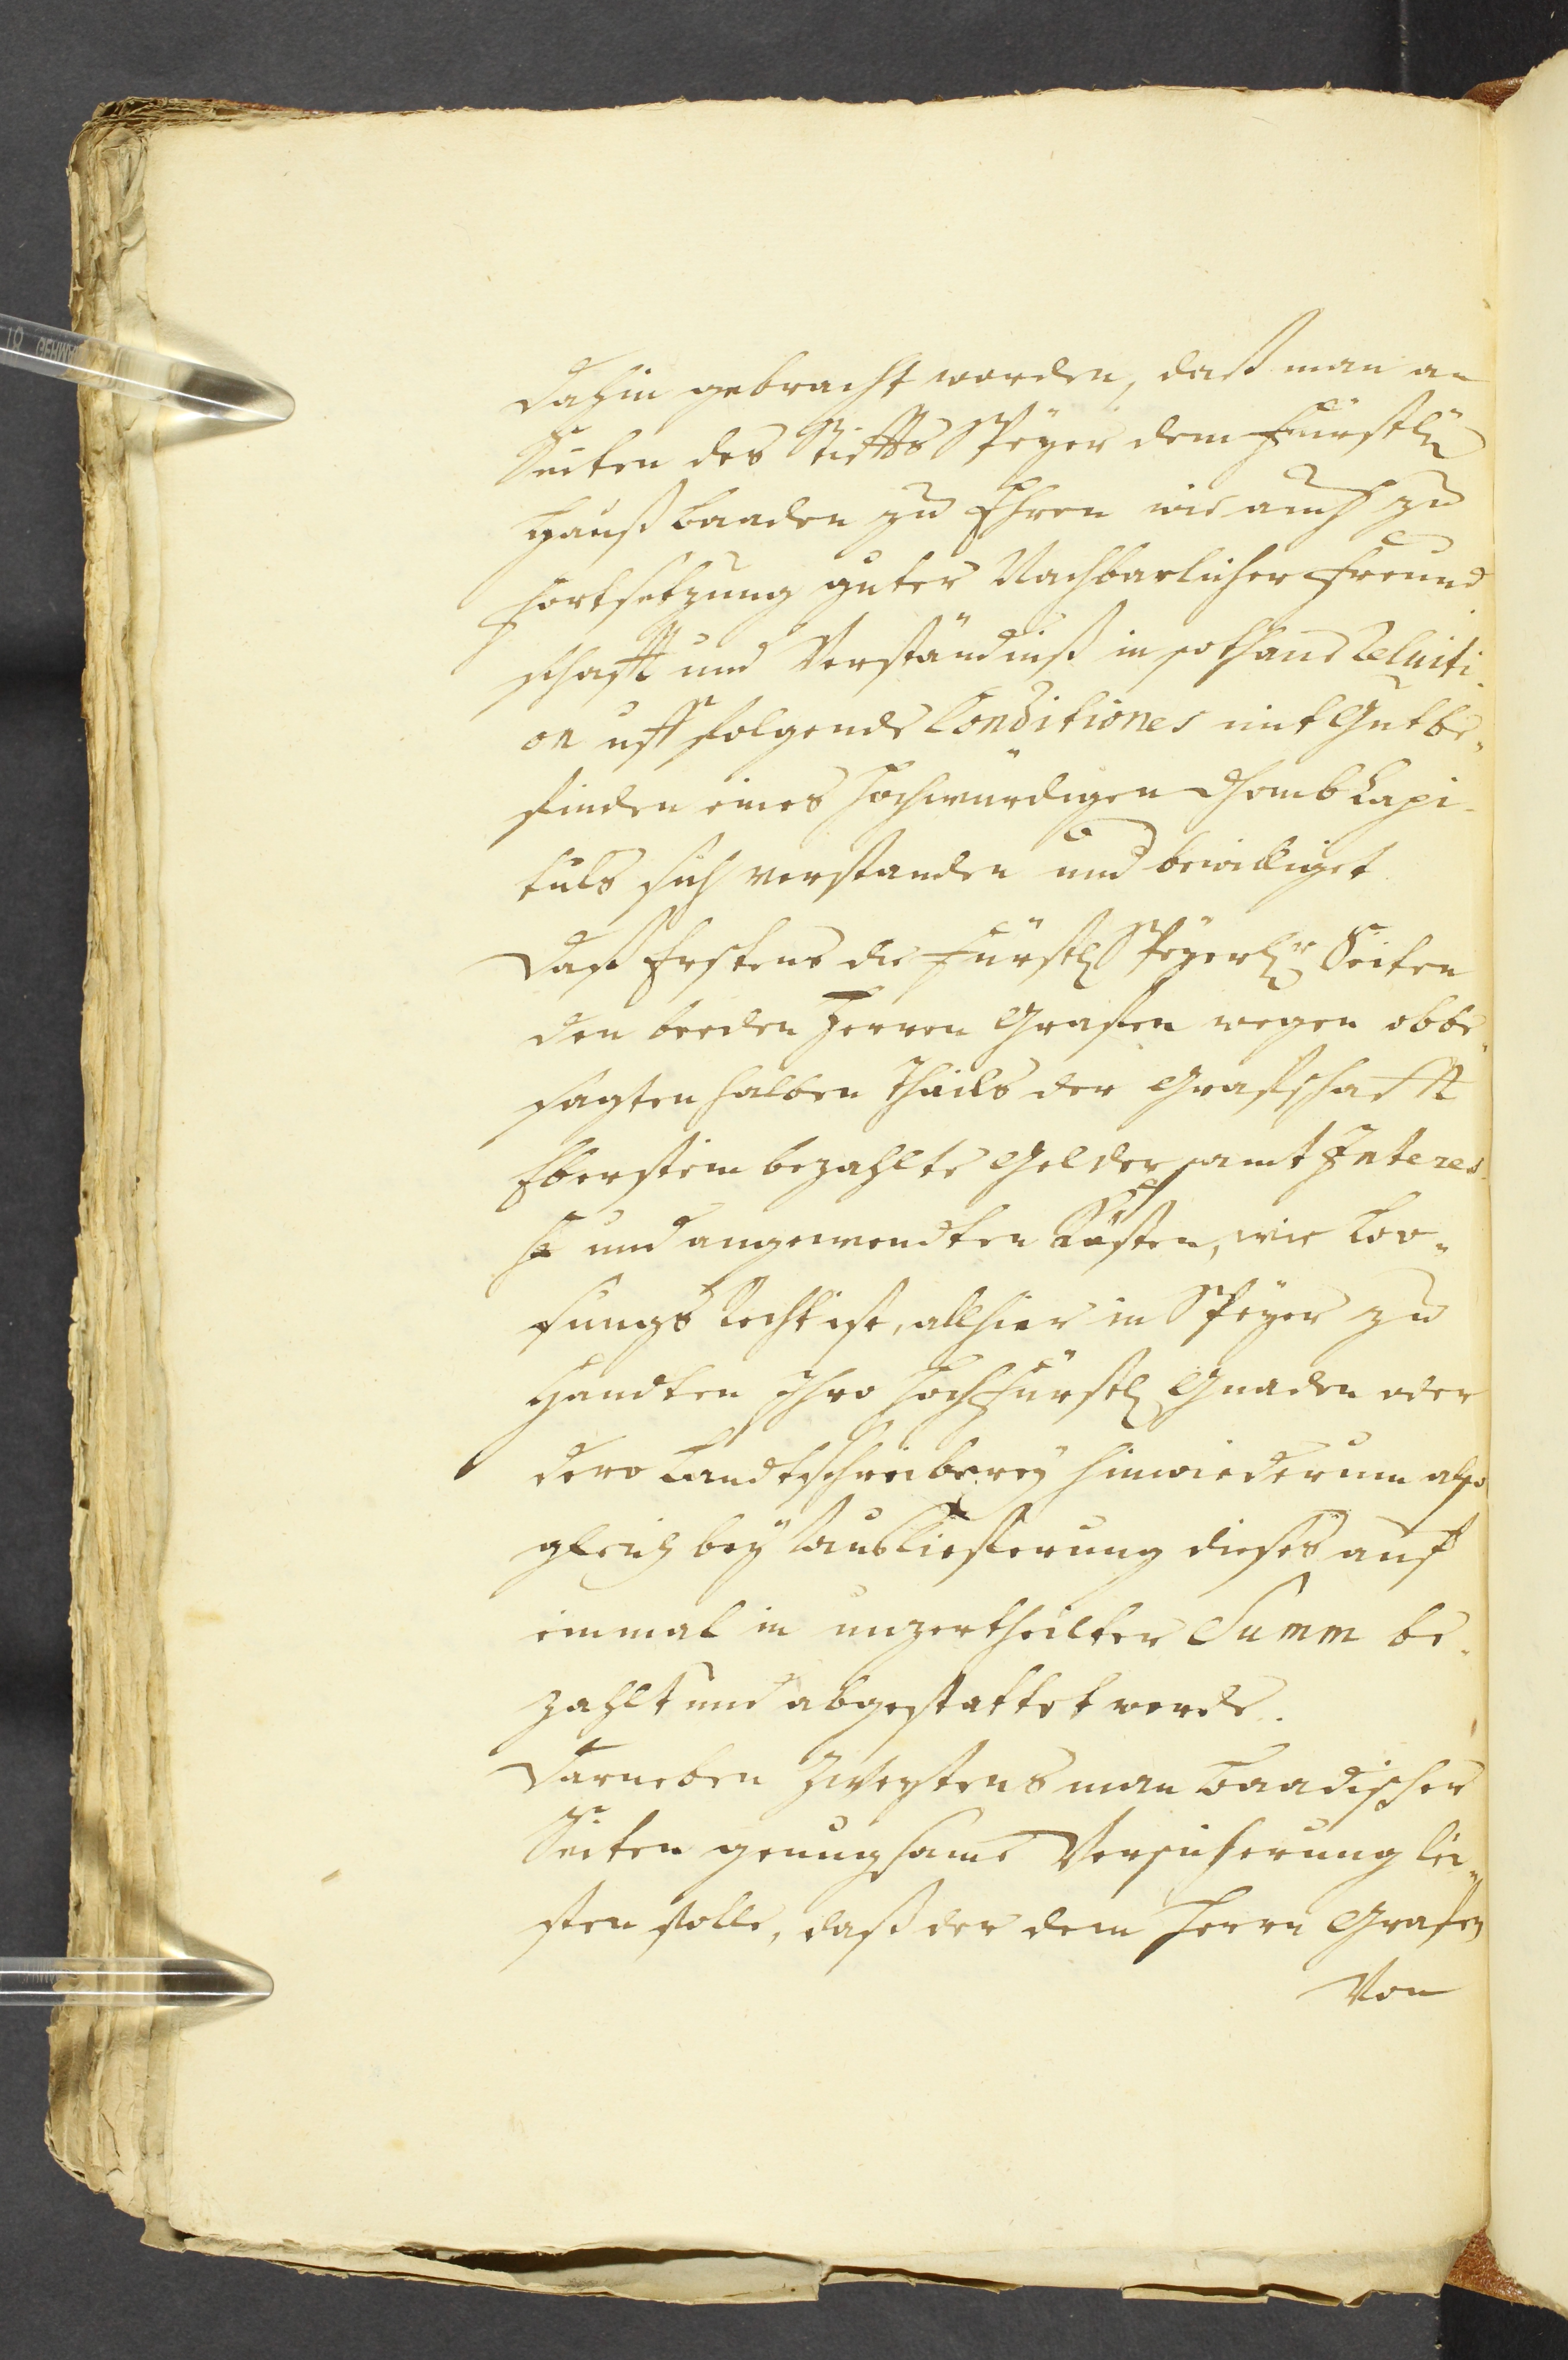 dahin gebracht worden, daß man an
Seiten des Stiffts Speyer dem Fürstl.
Hauß Baaden zu Ehren wie auch zu
Fortsetzung guter Nachbarlicher Freund
schafft und Verständniß in sothane Reluiti-
on uff folgende Conditiones mit Gutbe-
finden eines Hochwürdigen Thomb Capi-
tuls sich verstanden und bewilliget.
Daß Erstens die Fürstl. Speyerl. Seiten
den beeden Herren Grafen wegen obbe-
sagten halben Theils der Grafschafft
Eberstein bezahlte Gelder samt Interes-
se und angewendten Kosten, wie Loo-
sungs Recht ist, allhier in Speyer zu
Handten Ihro Hochfürstl. Gnaden oder
dero Landtschreiberey hinwiederum also
gleich bey Auslieferung dieses auf
einmal in unzertheilter Summ be-
zahlt und abgestattet werde.
Darneben Zweytens man Baadischer
Seiten genugsame Versicherung lei-
sten solle, daß der dem Herrn Grafen
Von